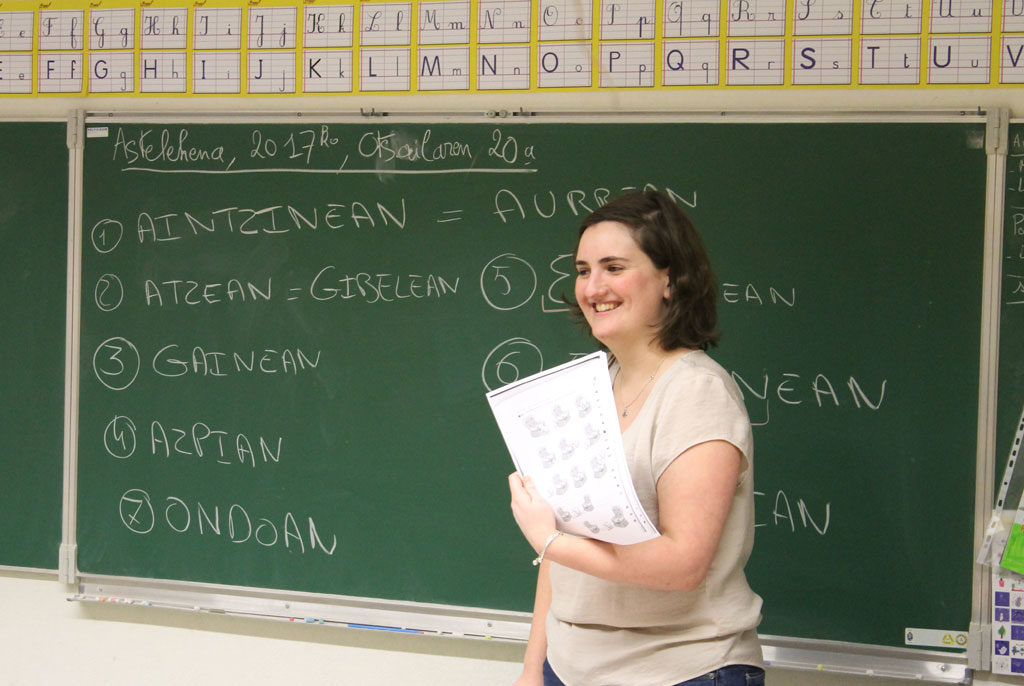 E e F f G g H h I i J j K k L l M m N n O o P p Q q R r S s T t U u
E e F f G g H h I i J j K k L l M m N n O o P p Q q R r S s T t U u V
Astelehena, 2017ko, Otsailaren 20a
1 AINTZINEAN = AURREAN
2 ATZEAN = GIBELEAN
5 EAN
3 GAINEAN
6 NEAN
4 AZPIAN
7 ONDOAN
IAN